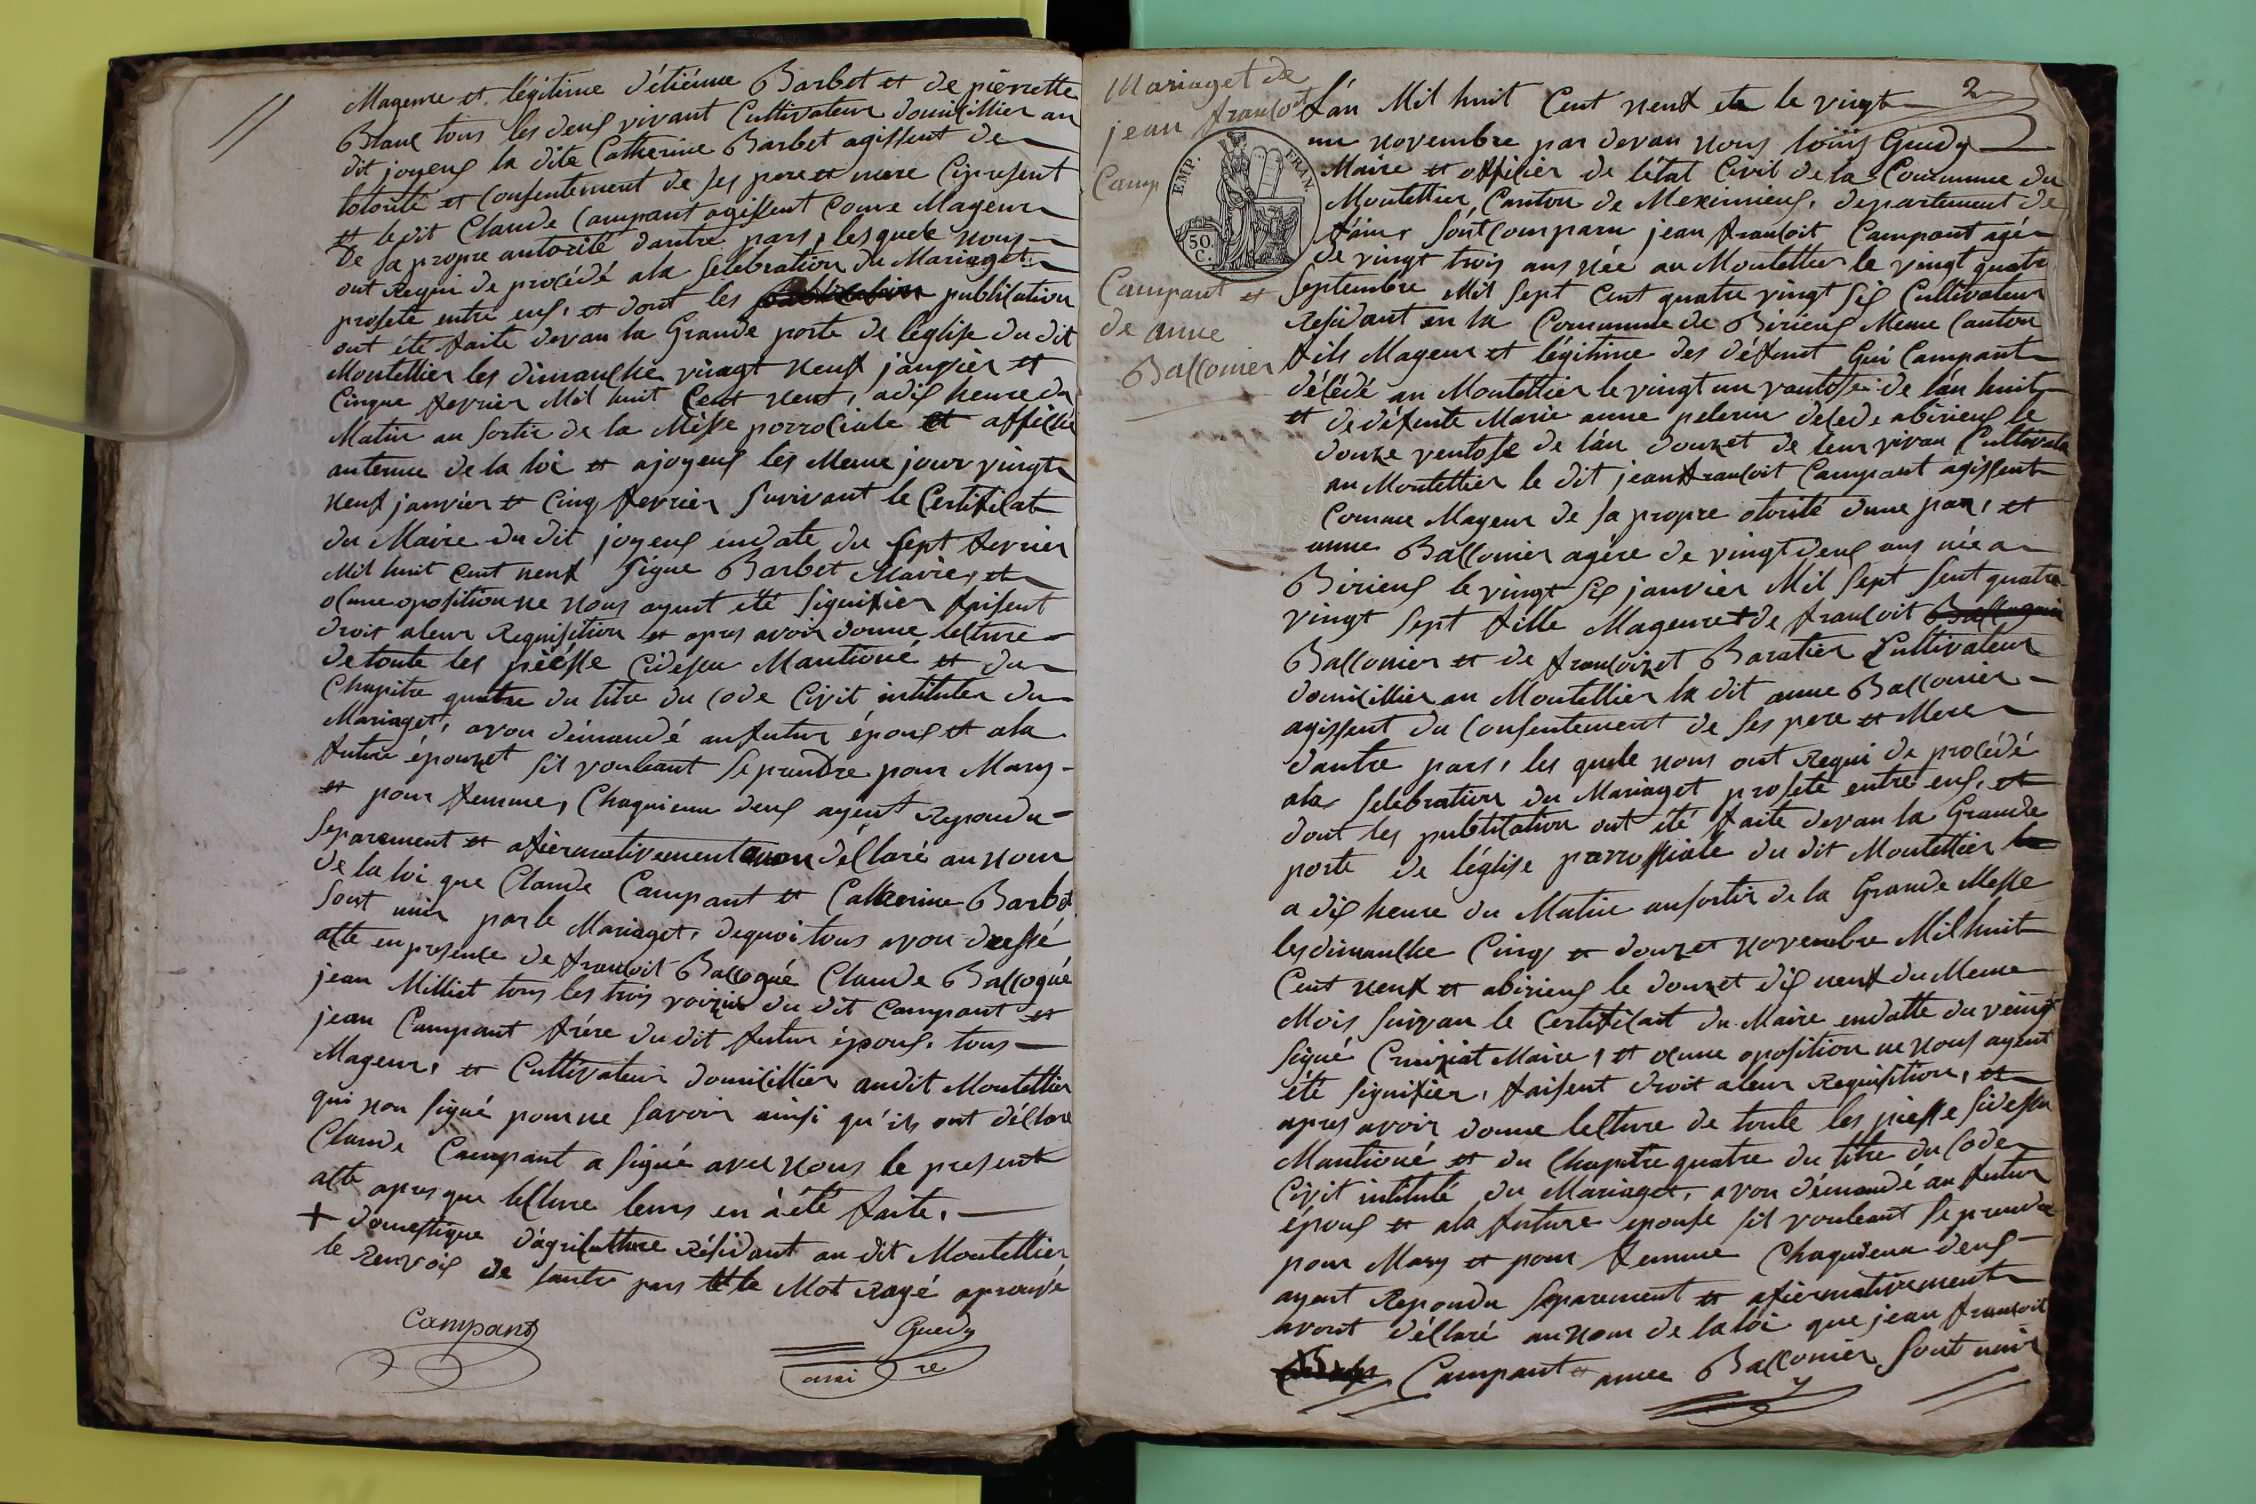 Mageure et légitime d'étiénne Barbet et de piérrette
Blanc tous les deux vivant Cultivateur domicillier au
dit joyeux la dite Catherine Barbet agissent de
lotorité et Consentement de ses pere et mere Cipresent
et ledit Claude Campant agissent Come Mageur
De sa propre autorité dautre pars, lesquele nous
ont Requi de procédé ala selebration du Mariaget
projeté entre eux, et dont les publication
ont été faite devan la Grande porte de léglise du dit
Montellier les dimanche vingt neuf janvier et
Cinque fevrier Mil huit Cent neuf, adix heure du
Matin au sortir de la Messe parrociale et affiché
autenue de la loi et ajoyeux les Meme jour vingt
neuf janvier et Cinq fevrier suvivant le Certificat
du Maire du dit joyeux endate du sept fevrier
Mil huit cent neuf signe Barbet Maire, et
ocune oposition ne nous ayant été signifier faisent
droit aleur Requisition et apres avoir donne lecture
de toute les piéésse cidessu Mantioné et du
Chapitre quatre du titre du Code Civit intituler du
Mariaget, avon démandé aufutur époux et ala
future épouzet sil vouleant se prendre pour Mary
et pour femme, Chaquieun deux ayent Repondu
separement et afiermativement avon déllaré au nom
de la loi que Claude Campant et Catherine Barbet
sont unir par le Mariaget, dequoi tous avon dressé
atte en presence de francoit Ballogué Claude Ballogué
jean Milliet tous les trois voizin du dit Campant et
jean Campant frére du dit futur époux, tous
Mageur, et Cultivateur domicillier audit Montellier
qui non signé pour ne savoir ainsi qu'ils ont déllare
Claude Campant a signé avec nous le present
atte apres que lecture leurs en à été faite.
+ domestique d'agriculture résidant au dit Montellier
le renvois de lautre pars et le Mot rayé aprouvé
Campant Guedy
mai re
Mariaget de
jean francoit
Camp
Campant et
de anne
Ballonier
EMP. FRAN.
50 C.
2
L'án Mil huit Cent neuf et le vingt
un novembre par devan nous loüis Guedy
Maire et officier de l'état Civil de la Commune du
Montellier, Canton de Meximieux, departement de
l'ain, sont Comparu jean francoit Campant agé
de vingt trois ans née au Montellier le vingt quatre
septembre Mil sept Cent quatre vingt six Cultivateur
residant en la Commune de Birieux Meme Canton
fils Mageur et légitime des défunt Gui Campant
décédé au Montellier le vingt un vantose de l'án huit
et de défunte Marie anne pelerin decede abirieux le
douze ventose de l'án douzet de leur vivan Cultivateur
au Montellier le dit jean francoit Campant agissent
Comme Mageur de sa propre otorité dune par, et
anne Ballonier agére de vingt deux ans née a
Birieux le vingt six janvier Mil sept sent quatre
vingt sept fille Mageure et de francoit
Ballonier et de francoizet Baratier Cultivateur
domicillier au Montellier la dit anne Ballonier
agissent du Consentement de ses pere et Mere
dautre pars, les quele nous ont Requi de procédé
ala selebration du Mariaget projeté entre eux, et
dont les publication ont été faite devan la Grande
porte de léglise parrossiale du dit Montellier
a dix heure du Matin ausortir de la Grande Messe
les dimanche Cinq et douzet novembre Mil huit
Cent neuf et abirieux le douzet dix neuf du Meme
Mois suivan le Certificat du Maire endatte du veingt
signé Cruiziat Maire, et ocune oposition ne nous ayent
été signifier, faisent droit aleur Requisition, et
apres avoir donne lecture de toute les piesse sidessu
Mantioné et du Chapitre quatre du titre du Code
Civit intitulé du Mariaget, avon démandé au futur
époux et ala future epouse sil vouleant se prendre
pour Mary et pour femme Chaqudeun deux
ayent Repondu separement et afiermativement
avont déllaré au nom de la loi que jean francoit
Campant et anne Ballonier sont unir